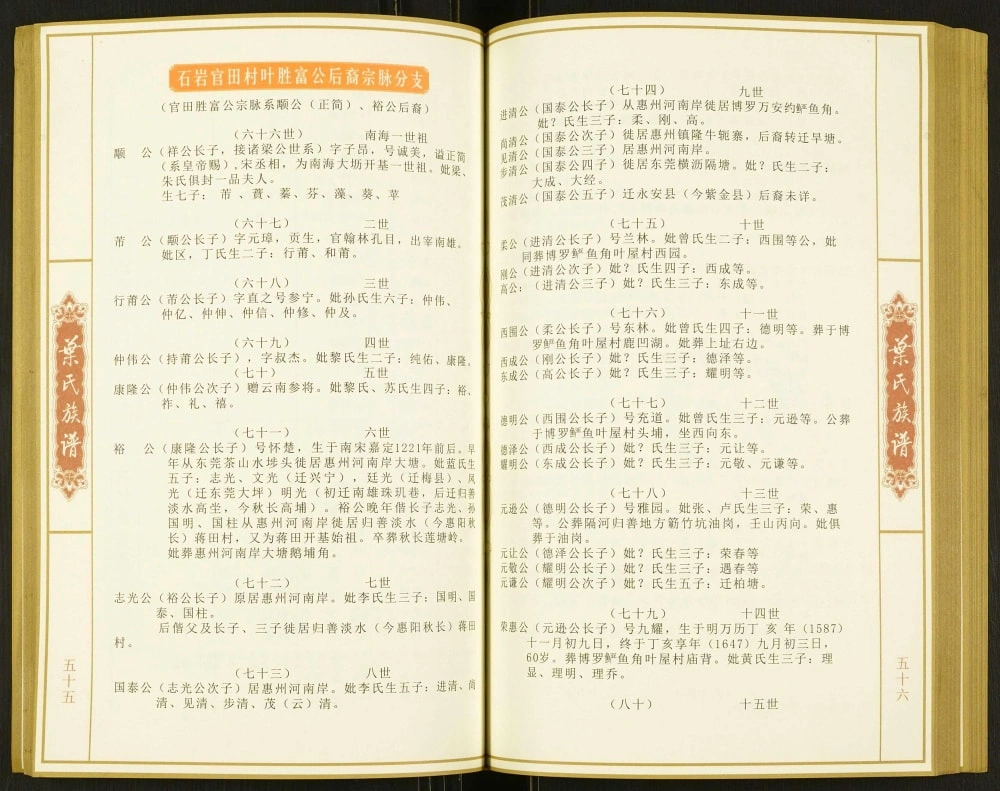 石岩官田村叶胜富公后裔宗脉分支
（官田胜富公宗脉系颙公（正简）、裕公后裔）
（六十六世） 南海一世祖
颙 公（祥公长子，接诸梁公世系）字子昂，号诚美，谥正简
（系皇帝赐）,宋丞相，为南海大坜开基一世祖。妣梁、
朱氏俱封一品夫人。
生七子： 芾 、蕡、蓁、芬、藻、葵、苹
（六十七） 二世
芾 公（颙公长子）字元璋，贡生，官翰林孔目，出宰南雄。
妣区，丁氏生二子：行莆、和莆。
（六十八） 三世
行莆公（芾公长子）字直之号参宁。妣孙氏生六子：仲伟、
仲亿、仲伸、仲信、仲修、仲及。
（六十九） 四世
仲伟公（持莆公长子），字叔杰。妣黎氏生二子：纯佑、康隆。
（七十） 五世
康隆公（仲伟公次子）赠云南参将。妣黎氏、苏氏生四子：裕、
祚、礼、禧。
（七十一） 六世
裕 公（康隆公长子）号怀楚，生于南宋嘉定1221年前后。早
年从东莞茶山水埗头徙居惠州河南岸大塘。妣蓝氏生
五子：志光、文光（迁兴宁），廷光（迁梅县）、凤
光（迁东莞大坪）明光（初迁南雄珠玑巷，后迁归善
淡水高坐，今秋长高埔）。裕公晚年偕长子志光、孙
国明、国柱从惠州河南岸徙居归善淡水（今惠阳秋
长）蒋田村，又为蒋田开基始祖。卒葬秋长莲塘岭。
妣葬惠州河南岸大塘鹅埔角。
（七十二） 七世
志光公（裕公长子）原居惠州河南岸。妣李氏生三子：国明、国
泰、国柱。
后偕父及长子、三子徙居归善淡水（今惠阳秋长）蒋田
村。
（七十三） 八世
国泰公（志光公次子）居惠州河南岸。妣李氏生五子：进清、尚
清、见清、步清、茂（云）清。
葉氏族谱
五十五
（七十四） 九世
进清公（国泰公长子）从惠州河南岸徙居博罗万安约鲈鱼角。
妣？氏生三子：柔、刚、高。
尚清公（国泰公次子）徙居惠州镇隆牛轭寨，后裔转迁早塘。
见清公（国泰公三子）居惠州河南岸。
步清公（国泰公四子）徙居东莞横沥隔塘。妣？氏生二子：
大成、大经。
茂清公（国泰公五子）迁永安县（今紫金县）后裔未详。
（七十五） 十世
柔公（进清公长子）号兰林。妣曾氏生二子：西围等公，妣
同葬博罗鲈鱼角叶屋村西园。
刚公（进清公次子）妣？氏生四子：西成等。
高公：（进清公三子）妣？氏生三子：东成等。
（七十六） 十一世
西围公（柔公长子）号东林。妣曾氏生四子：德明等。葬于博
罗鲈鱼角叶屋村鹿凹湖。妣葬上址右边。
西成公（刚公长子）妣？氏生三子：德泽等。
东成公（高公长子）妣？氏生三子：耀明等。
（七十七） 十二世
德明公（西围公长子）号充道。妣曾氏生三子：元逊等。公葬
于博罗鲈鱼叶屋村头埔，坐西向东。
德泽公（西成公长子）妣？氏生三子：元让等。
耀明公（东成公长子）妣？氏生三子：元敬、元谦等。
（七十八） 十三世
元逊公（德明公长子）号雅园。妣张、卢氏生三子：荣、惠
等。公葬隔河归善地方簕竹坑油岗，壬山丙向。妣俱
葬于油岗。
元让公（德泽公长子）妣？氏生三子：荣春等
元敬公（耀明公长子）妣？氏生三子：遇春等
元谦公（耀明公次子）妣？氏生五子：迁柏塘。
（七十九） 十四世
荣惠公（元逊公长子）号九耀，生于明万历丁 亥 年（1587）
十一月初九日，终于丁亥享年（1647）九月初三日，
60岁。葬博罗鲈鱼角叶屋村庙背。妣黄氏生三子：理
显、理明、理乔。
（八十） 十五世
葉氏族谱
五十六